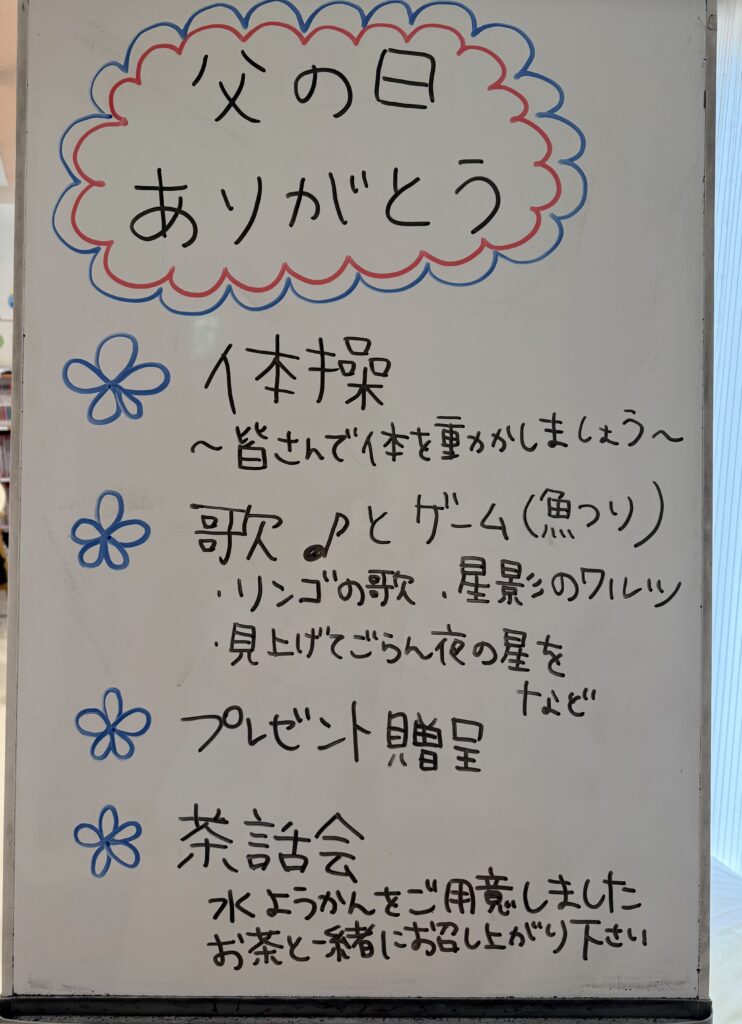 父の日
ありがとう
体操
～皆さんで体を動かしましょう～
歌♪とゲーム(魚つり)
・リンゴの歌 ・星影のワルツ
・見上げてごらん夜の星を
など
プレゼント贈呈
茶話会
水ようかんをご用意しました
お茶と一緒にお召し上がり下さい